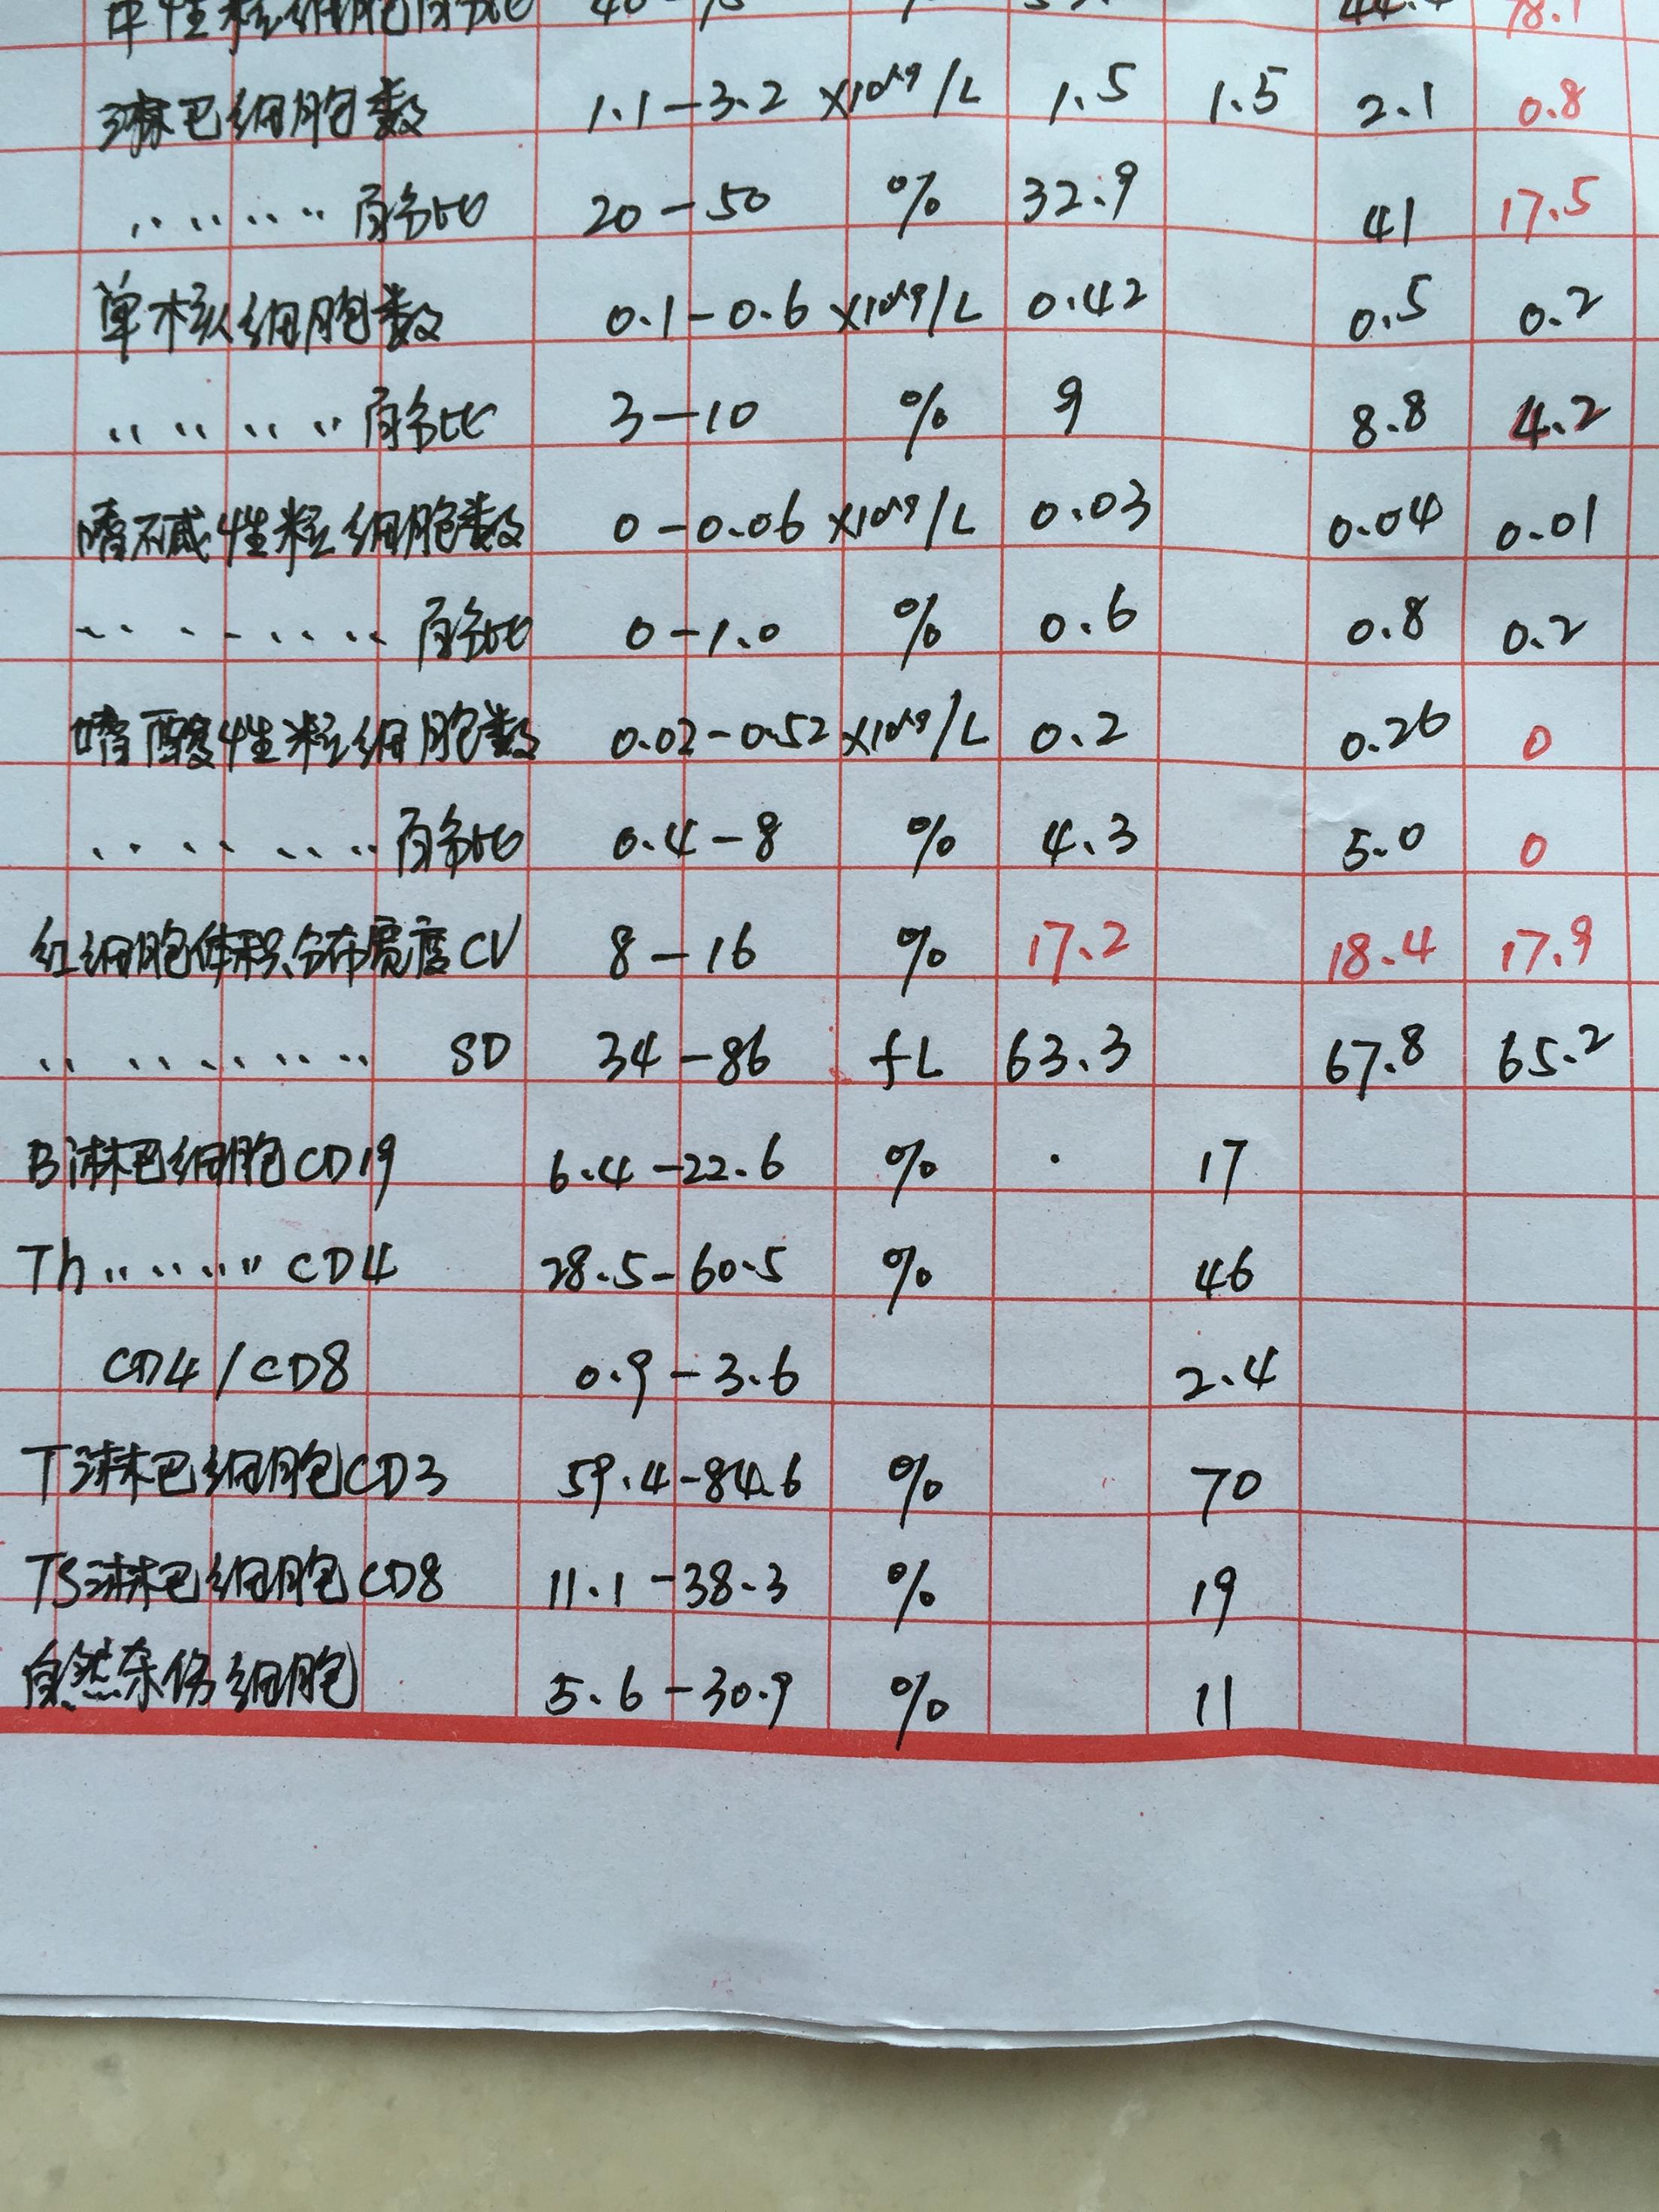 中性粒细胞百分比 40-75 % 44.4 78.1
淋巴细胞数 1.1-3.2 ×10^9/L 1.5 1.5 2.1 0.8
〃〃〃〃百分比 20-50 % 32.9 41 17.5
单核细胞数 0.1-0.6 ×10^9/L 0.42 0.5 0.2
〃〃〃〃百分比 3-10 % 9 8.8 4.2
嗜碱性粒细胞数 0-0.06 ×10^9/L 0.03 0.04 0.01
〃〃〃〃百分比 0-1.0 % 0.6 0.8 0.2
嗜酸性粒细胞数 0.02-0.52 ×10^9/L 0.2 0.26 0
〃〃〃〃百分比 0.4-8 % 4.3 5.0 0
红细胞体积分布宽度CV 8-16 % 17.2 18.4 17.9
〃〃〃〃 SD 34-86 fL 63.3 67.8 65.2
B淋巴细胞CD19 6.4-22.6 % 17
Th〃〃〃〃CD4 28.5-60.5 % 46
CD4/CD8 0.9-3.6 2.4
T淋巴细胞CD3 59.4-84.6 % 70
TS淋巴细胞CD8 11.1-38.3 % 19
自然杀伤细胞 5.6-30.9 % 11